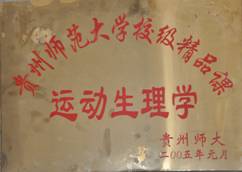 贵州师范大学校级精品课
运动生理学
贵州师大
二00五年元月